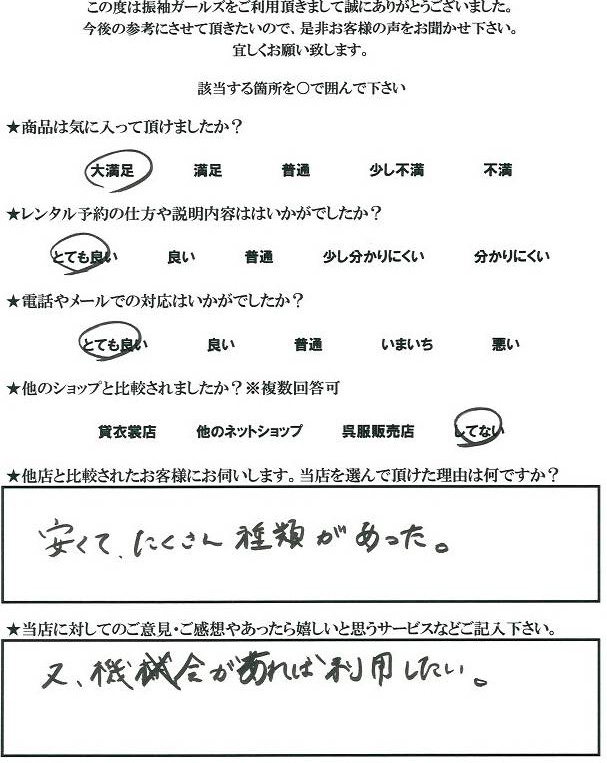 この度は振袖ガールズをご利用頂きまして誠にありがとうございました。
今後の参考にさせて頂きたいので、是非お客様の声をお聞かせ下さい。
宜しくお願い致します。
該当する箇所を○で囲んで下さい
★商品は気に入って頂けましたか？
大満足 満足 普通 少し不満 不満
★レンタル予約の仕方や説明内容ははいかがでしたか？
とても良い 良い 普通 少し分かりにくい 分かりにくい
★電話やメールでの対応はいかがでしたか？
とても良い 良い 普通 いまいち 悪い
★他のショップと比較されましたか？※複数回答可
貸衣裳店 他のネットショップ 呉服販売店 してない
★他店と比較されたお客様にお伺いします。当店を選んで頂けた理由は何ですか？
安くて、たくさん種類があった。
★当店に対してのご意見・ご感想やあったら嬉しいと思うサービスなどご記入下さい。
又、機会があれば利用したい。